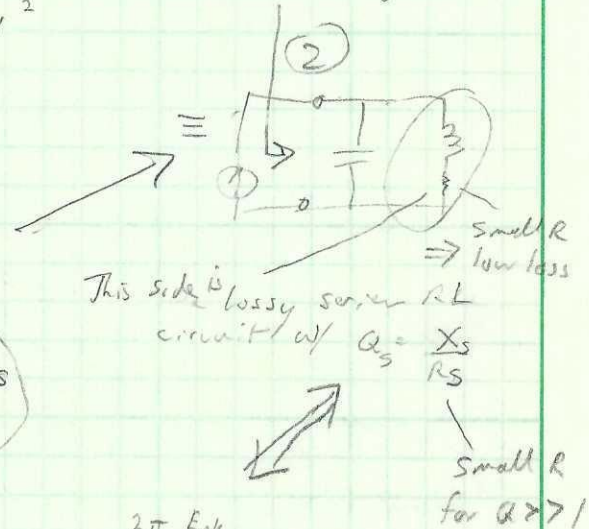 2
2
≡
Small R
⇒ low loss
This side is lossy series RL
circuit w/ Q_s = X_s / R_s
s
Small R
for Q >> 1
2π